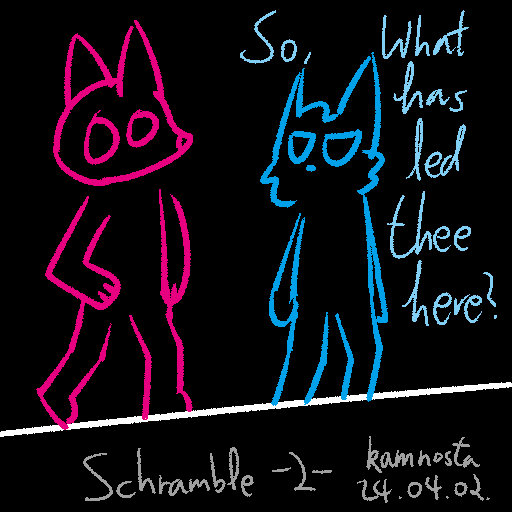 So,
What
has
led
thee
here?
Schramble -2-
kamnosta
24.04.02.